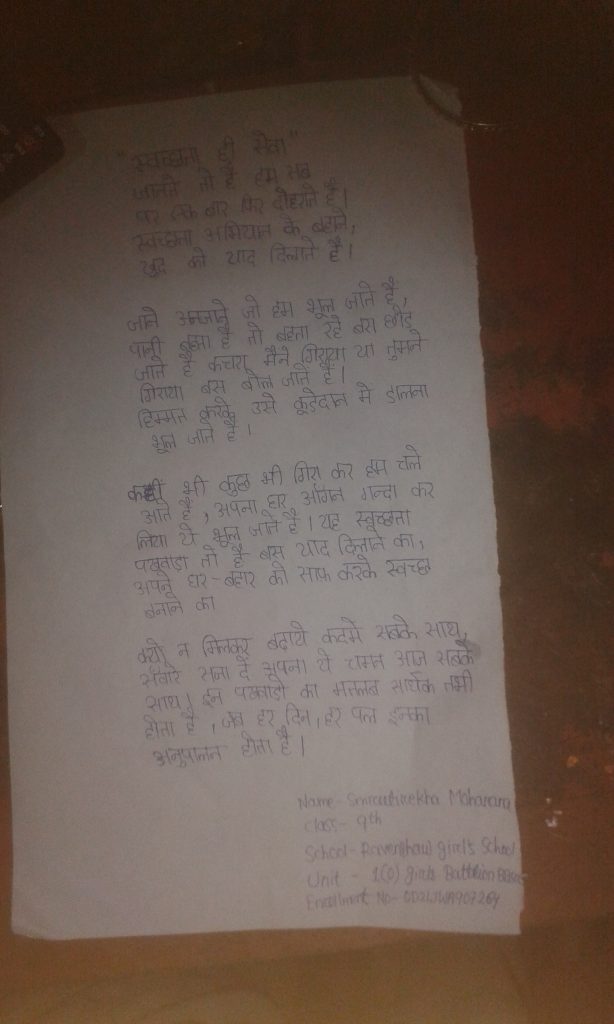 "स्वच्छता ही सेवा"
जानते तो है हम सब
पर एक बार फिर दोहराते है।
स्वच्छता अभियान के बहाने,
खुद को याद दिलाते है।
जाने अनजाने जो हम भूल जाते है,
पानी बहता है तो बहता रहे बस छोड़
जाते है कचरा मैने गिराया या तुमने
गिराया बस बोल जाते है।
हिम्मत करके उसे कूड़ेदान मे डालना
भूल जाते है।
कही भी कुछ भी गिरा कर हम चले
आते है, अपना घर आंगन गन्दा कर
लिया ये भूल जाते है। यह स्वच्छता
पखवाडा तो है बस याद दिलाने का,
अपने घर-बहार को साफ करके स्वच्छ
बनाने का
क्यो न मिलकर बढ़ाये कदमे सबके साथ,
सवारे सजा दे अपना ये चमन आज सबके
साथ। इन पखवाडो का मतलब सार्थक तभी
होता है, जब हर दिन, हर पल इनका
अनुपालन होता है।
Name- Smrutirekha Maharana
Class- 9th
School- Ravenshaw girl's School
Unit - 1(O) girls Battlion
Enrollment No- OD21JWA907264